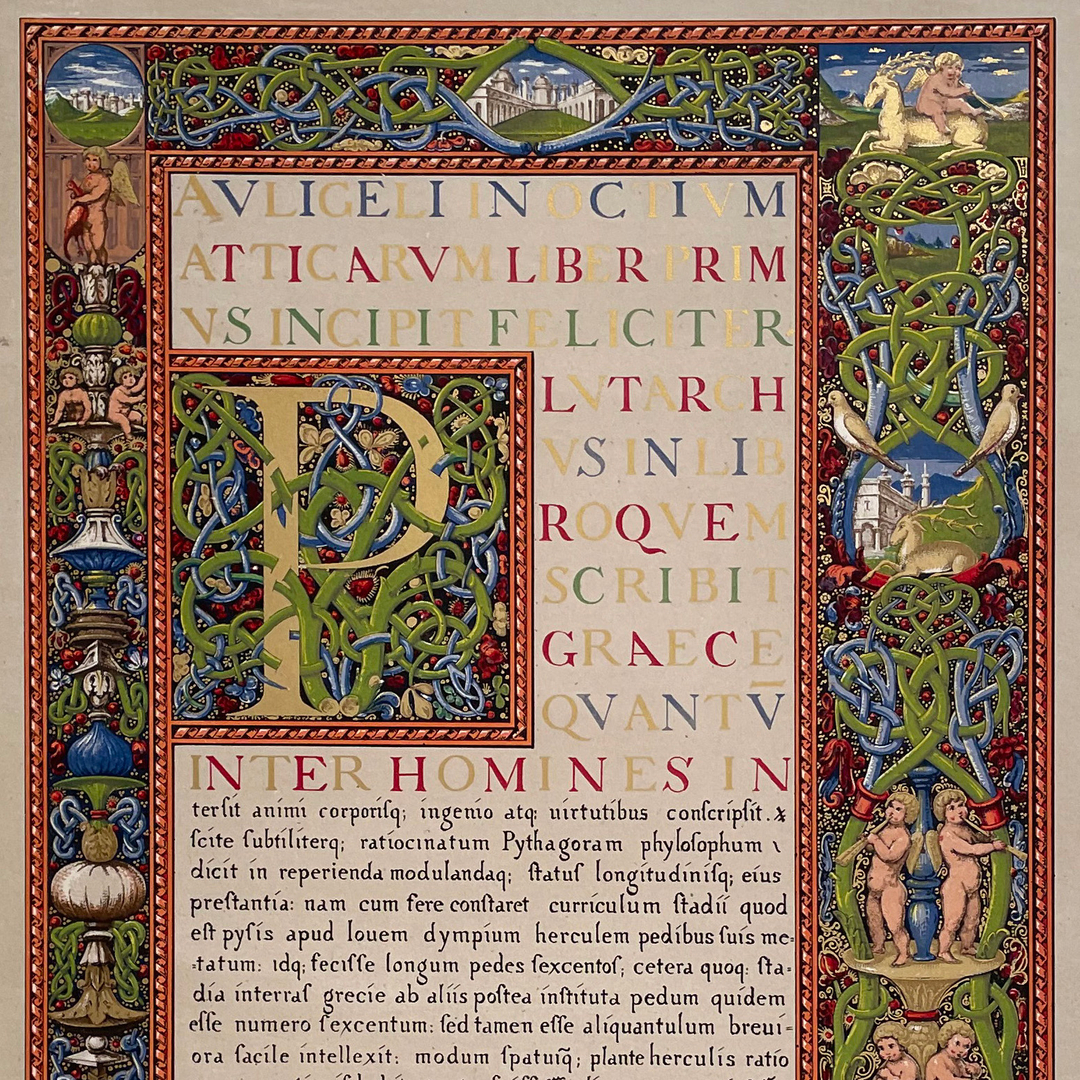 AVLI GELI INOCTIVM
ATTICARVM LIBER PRIM
VS INCIPIT FELICITER
P
LVTARCH
VS IN LIB
RO QVEM
SCRIBIT
GRAECE
QVANTV̄
INTER HOMINES IN
terſit animi corporiſq; ingenio atq; uirtutibus conſcripſit. x
ſcite ſubtiliterq; ratiocinatum Pythagoram phyloſophum \
dicit in reperienda modulandaq; ſtatuſ longitudiniſq; eius
preſtantia: nam cum fere conſtaret curriculum ſtadii quod
eſt pyſis apud Iouem dympium herculem pedibus ſuis me=
=tatum: idq; feciſſe longum pedes ſexcentoſ; cetera quoq: ſta=
dia interraſ grecie ab aliis poſtea inſtituta pedum quidem
eſſe numero ſexcentum: ſed tamen eſſe aliquantulum breui=
ora facile intellexit: modum ſpatiūq; plante herculis ratio